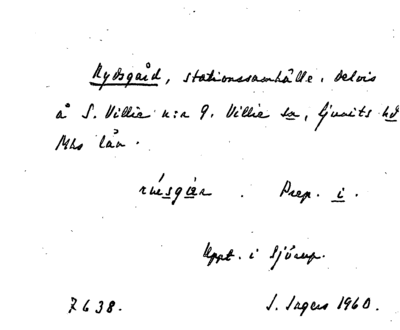 Rydsgård, stationssamhälle, delvis
å S. Villie n:r 9. Villie sn, Ljunits hd
Mhs län.
. Prep. i.
Uppt. i Sjörup.
7638. S. Sagers 1960.